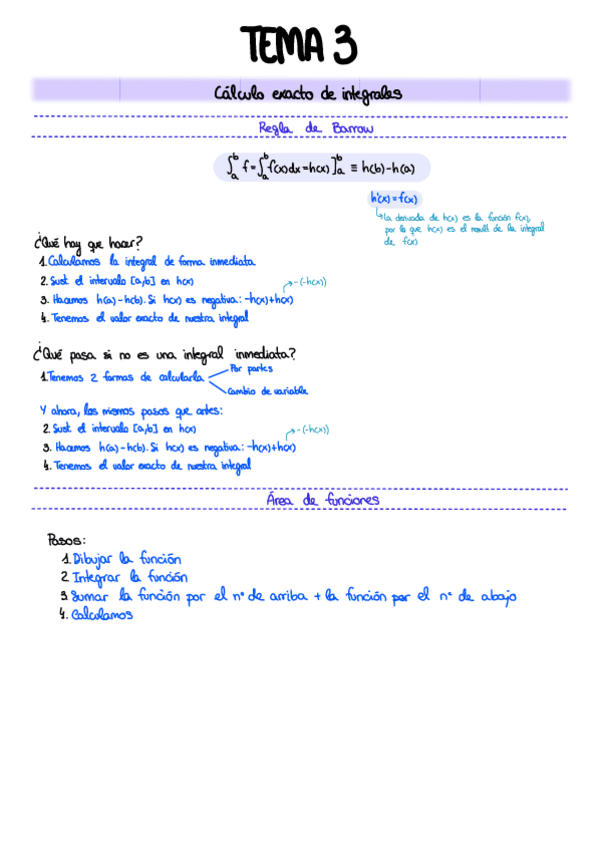 TEMA 3
Cálculo exacto de integrales
Regla de Barrow
∫_a^b f = ∫_a^b f(x)dx = h(x)]_a^b ≡ h(b)-h(a)
h'(x) = f(x)
↳ la derivada de h(x) es la función f(x),
por lo que h(x) es el result de la integral
de f(x)
¿Qué hay que hacer?
1. Calculamos la integral de forma inmediata
2. Sust el intervalo [a,b] en h(x)
→ -(-h(x))
3. Hacemos h(a)-h(b). Si h(x) es negativa: -h(x)+h(x)
4. Tenemos el valor exacto de nuestra integral
¿Qué pasa si no es una integral inmediata?
Por partes
1. Tenemos 2 formas de calcularla
Cambio de variable
Y ahora, los mismos pasos que antes:
2. Sust el intervalo [a,b] en h(x)
→ -(-h(x))
3. Hacemos h(a)-h(b). Si h(x) es negativa: -h(x)+h(x)
4. Tenemos el valor exacto de nuestra integral
Área de funciones
Pasos:
1. Dibujar la función
2. Integrar la función
3. Sumar la función por el nº de arriba + la función por el nº de abajo
4. Calculamos